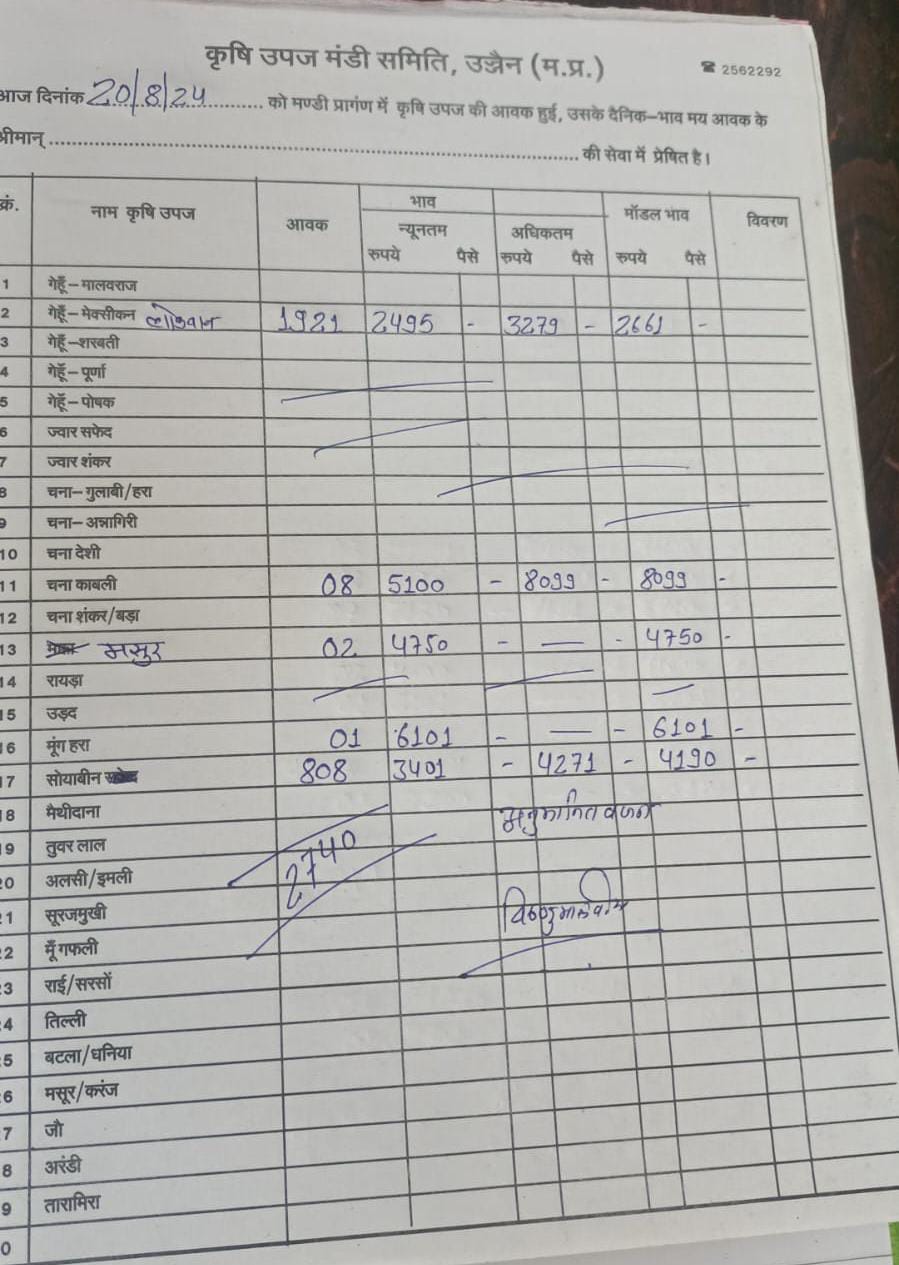 कृषि उपज मंडी समिति, उज्जैन (म.प्र.) ☎ 2562292
आज दिनांक 20/8/24 को मण्डी प्रागंण में कृषि उपज की आवक हुई, उसके दैनिक-भाव मय आवक के
श्रीमान् ........ की सेवा में प्रेषित है।
क्रं. नाम कृषि उपज आवक भाव मॉडल भाव विवरण
न्यूनतम अधिकतम
रुपये पैसे रुपये पैसे रुपये पैसे
1 गेहूँ-मालवराज
2 गेहूँ-मेक्सीकन लोकवान 1921 2495 - 3279 - 2661 -
3 गेहूँ-शरबती
4 गेहूँ-पूर्णा
5 गेहूँ-पोषक
6 ज्वार सफेद
7 ज्वार शंकर
8 चना-गुलाबी/हरा
9 चना-अन्नागिरी
10 चना देशी
11 चना काबली 08 5100 - 8099 - 8099 -
12 चना शंकर/बड़ा
13 मसुर 02 4750 - — - 4750 -
14 रायड़ा
15 उड़द
16 मूंग हरा 01 6101 - — - 6101 -
17 सोयाबीन 808 3401 - 4271 - 4190 -
18 मैथीदाना अनुमानित वजन
19 तुवर लाल 2740
20 अलसी/इमली
21 सूरजमुखी
22 मूँगफली
23 राई/सरसों
24 तिल्ली
25 बटला/धनिया
26 मसूर/करंज
27 जौ
28 अरंडी
29 तारामिरा
0